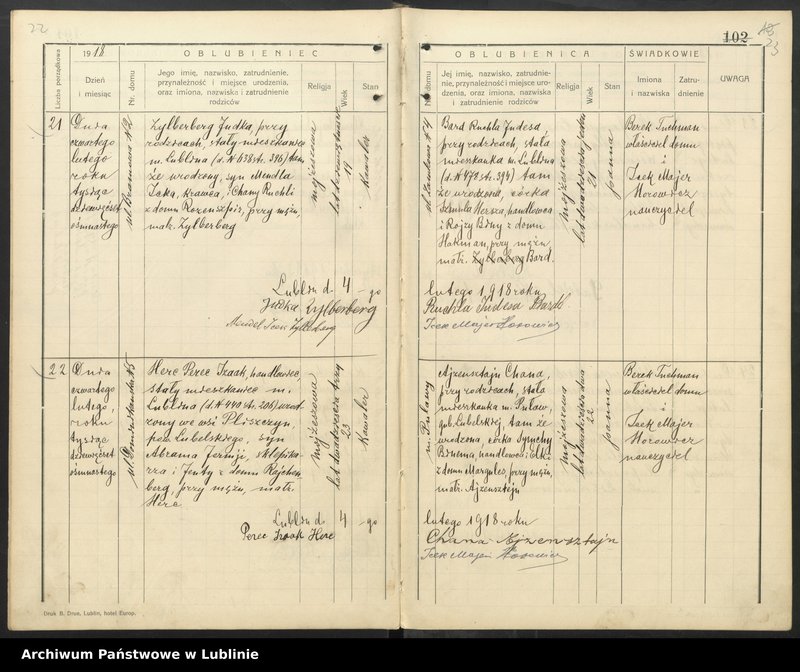 22
102
23
1918
OBLUBIENIEC
OBLUBIENICA
ŚWIADKOWIE
UWAGA
Liczba porządkowa
Dzień
i miesiąc
Nr. domu
Jego imię, nazwisko, zatrudnienie,
przynależność i miejsce urodzenia,
oraz imiona, nazwiska i zatrudnienie
rodziców
Religja
Wiek
Stan
Nr. domu
Jej imię, nazwisko, zatrudnie-
nie, przynależność i miejsce uro-
dzenia, oraz imiona, nazwiska
i zatrudnienie rodziców
Religja
Wiek
Stan
Imiona
i nazwiska
Zatru-
dnienie
21
Dnia
czwartego
lutego
roku
tysiąc
dziewięćset
ośmnastego
Zylberberg Judka, przy
rodzicach, stały mieszkaniec
m. Lublina (d. № 638 st. 396) tam
że urodzony, syn Mendla
Icka, krawca, i Chany Ruchli
z domu Rozenszpic, przy mężu,
matr. Zylberberg
mojżeszowa
lat dziewiętnaście
19
Kawaler
Lublin d. 4-go
Judka Zylberberg
Mendel Icek Zylberberg
Bard Ruchla Judesa,
przy rodzicach, stała
mieszkanka m. Lublina
(d. № 479 st. 394) tam
że urodzona, córka
Szmula Hersza, handlowca
i Rojzy Bdny z domu
Hakman, przy mężu
matr. Zylberberg Bard.
mojżeszowa
lat dwadzieścia jeden
21
panna
Berek Tuchman
właściciel domu
i
Icek Majer
Horowicz
nauczyciel
lutego 1918 roku
Ruchla Judesa Bard
Icek Majer Horowicz
22
Dnia
czwartego
lutego,
roku
tysiąc
dziewięćset
ośmnastego
Herc Perec Izaak, handlowiec,
stały mieszkaniec m.
Lublina (d. № 449 st. 206) urod-
zony we wsi Pliszczyn,
pow. Lubelskiego, syn
Abrama Jermji, sklepika-
rza i Jenty z domu Rajchen-
berg, przy mężu, matr.
Herc
mojżeszowa
lat dwadzieścia trzy
23
Kawaler
Lublin d. 4-go
Perec Izaak Herc
m. Puławy
Ajzensztajn Chana,
przy rodzicach, stała
mieszkanka m. Puław,
gub. Lubelskiej, tam że
urodzona, córka Symchy
Bunema, handlowca i Elki
z domu Margules, przy mężu,
matr. Ajzensztajn
mojżeszowa
lat dwadzieścia dwa
22
panna
Berek Tuchman
właściciel domu
i
Icek Majer
Horowicz
nauczyciel
lutego 1918 roku
Chana Ajzensztajn
Icek Majer Horowicz
Druk B. Drue, Lublin, hotel Europ.
Archiwum Państwowe w Lublinie